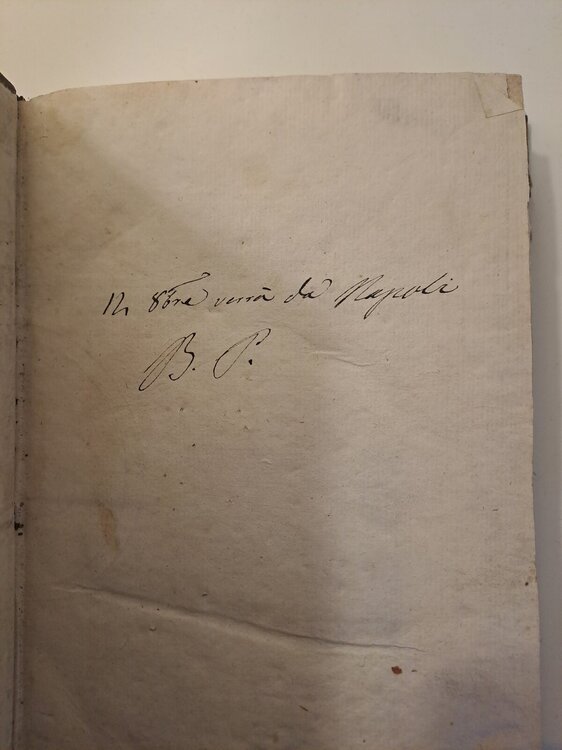 12 8bre verrà da Napoli
B. P.